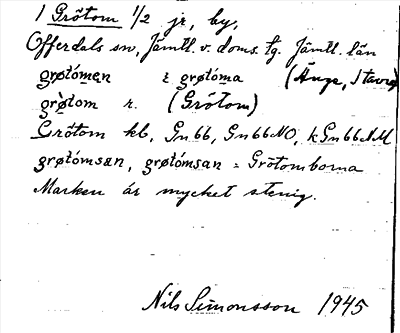 1 Grötom 1/2 jr, by,
Offerdals sn, Jämtl. v. doms. tg. Jämtl. län
grøtómen & grøtóma (Änge, Stavre)
grøtom r. (Grötom)
Grötom kb, Gn 66, Gn 66 NO, k Gn 66 NM
grøtómsæn, grøtómsan = Grötomborna
Marken är mycket stenig.
Nils Simonsson 1945